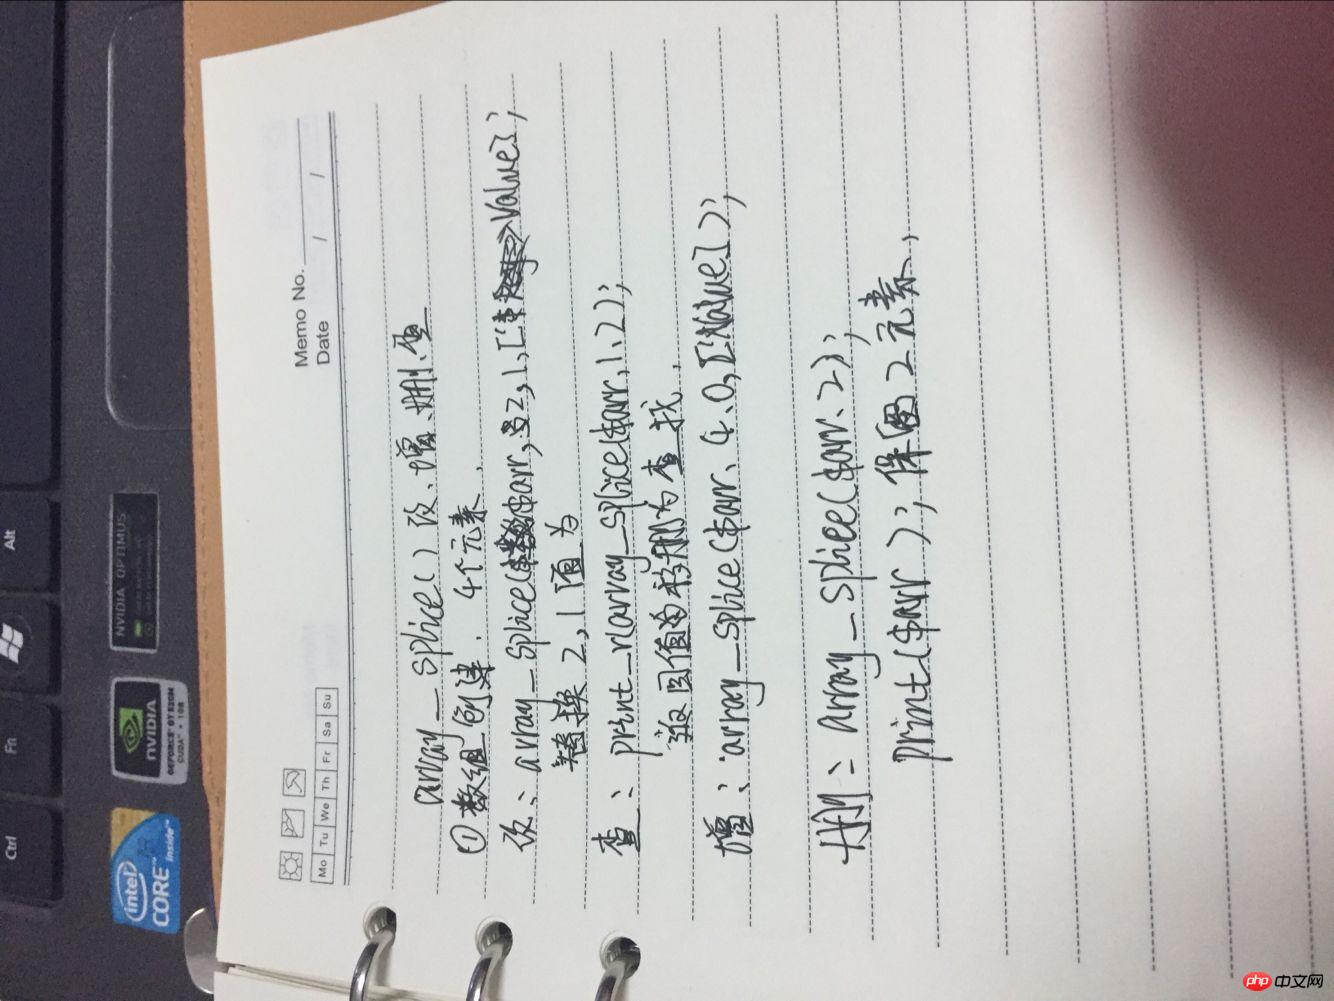 Memo No.
Date / /
Mo Tu We Th Fr Sa Su
array_splice() 改、增、删、查
① 数组创建. 4个元素.
改: array_splice($arr, 2, 1, [' value];
替换 2, 1 值为
查: print_r(array_splice($arr, 1, 2);
返回值为移删为查找.
增: array_splice($arr, 4, 0, ['value]);
删: array_splice($arr, 2);
print($arr); 保留2元素,
Alt
Fn
Ctrl
NVIDIA OPTIMUS
nVIDIA
GEFORCE GT 520M
CUDA 1GB
intel
CORE
inside
php 中文网